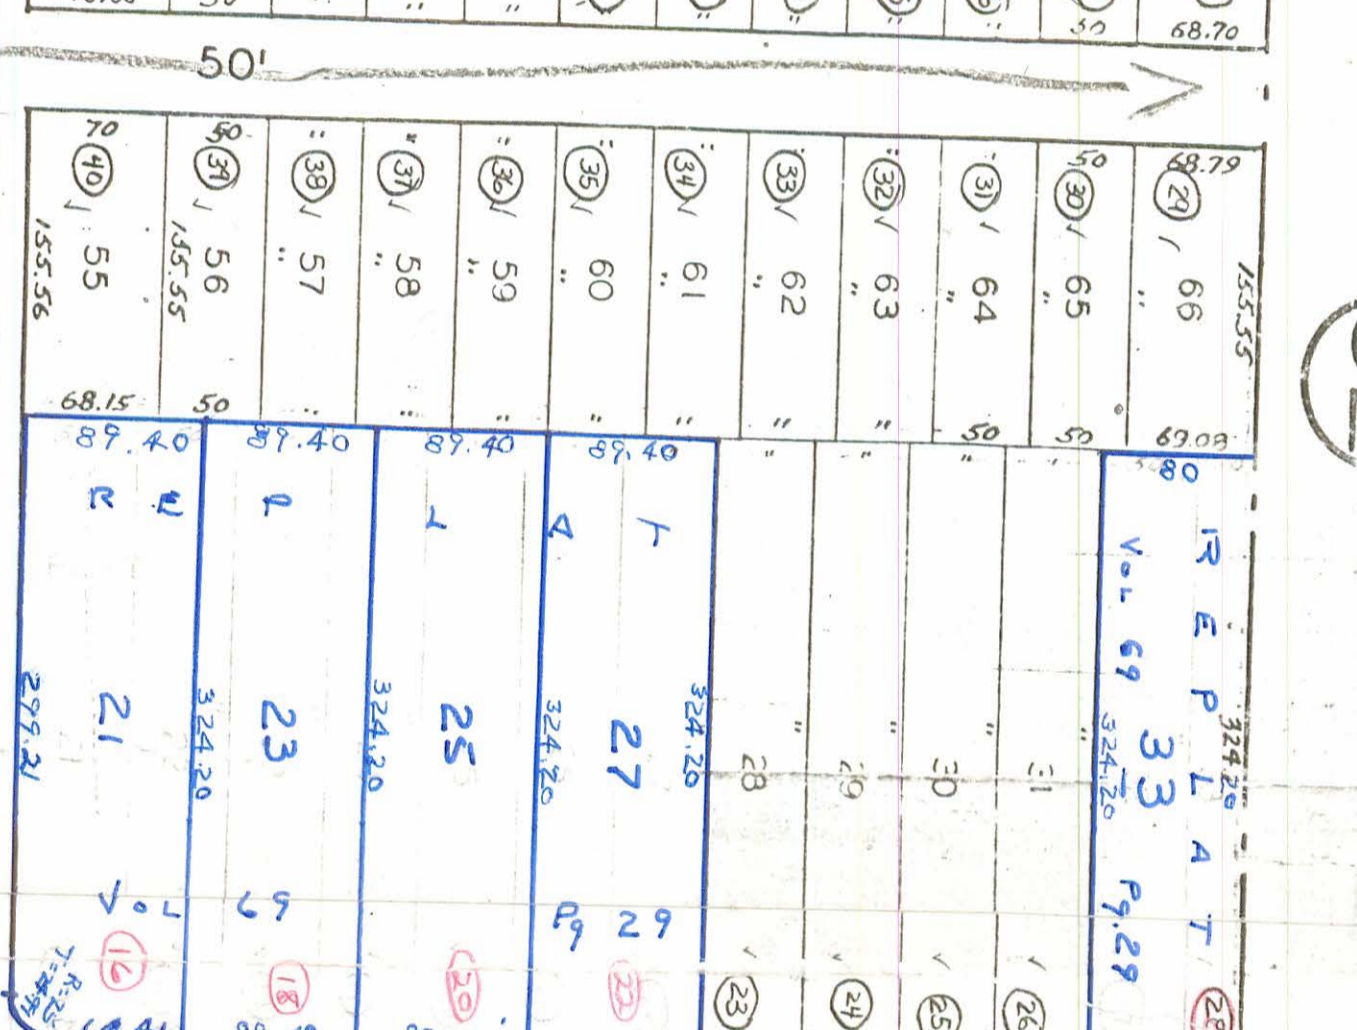 50 68.70
50'
70 50 " " " " " " " " 50 68.79
40 39 38 37 36 35 34 33 32 31 30 29
55 56 57 58 59 60 61 62 63 64 65 66
155.56 155.55 " " " " " " " " " " 155.55
68.15 50 " " " " " " " 50 50 69.09
89.40 89.40 89.40 89.40 " " " " 80
R E P L A T
REPLAT
VOL 69 Pg. 29
33
324.20 324.20
21 23 25 27 28 29 30 31
299.21 324.20 324.20 324.20 324.20
VOL 69 Pg 29
16 18 20 22 23 24 25 26 28
R=25